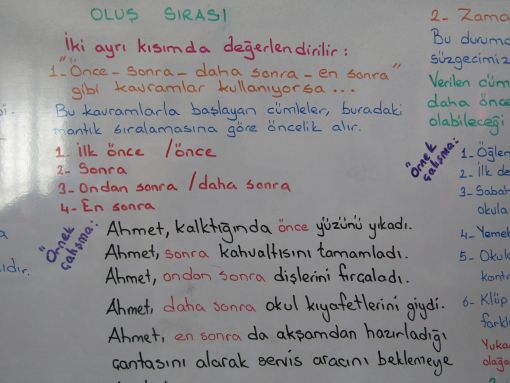 OLUŞ SIRASI
İki ayrı kısımda değerlendirilir:
1- "Önce - sonra - daha sonra - en sonra"
gibi kavramlar kullanıyorsa ...
Bu kavramlarla başlayan cümleler, buradaki
mantık sıralamasına göre öncelik alır.
1- İlk önce / önce
2- Sonra
3- Ondan sonra / daha sonra
4- En sonra
"Örnek
çalışma:
Ahmet, kalktığında önce yüzünü yıkadı.
Ahmet, sonra kahvaltısını tamamladı.
Ahmet, ondan sonra dişlerini fırçaladı.
Ahmet, daha sonra okul kıyafetlerini giydi.
Ahmet, en sonra da akşamdan hazırladığı
çantasını alarak servis aracını beklemeye
2- Zama
Bu durumd
süzgecimiz
Verilen cüm
daha önce
olabileceği
Örnek
çalışma:
1- Öğlen
2- İlk de
3- Sabah
okula
4- Yemek
5- Okul
kontr
6- Klüp
farklı
Yuka
olağa
ıdır.